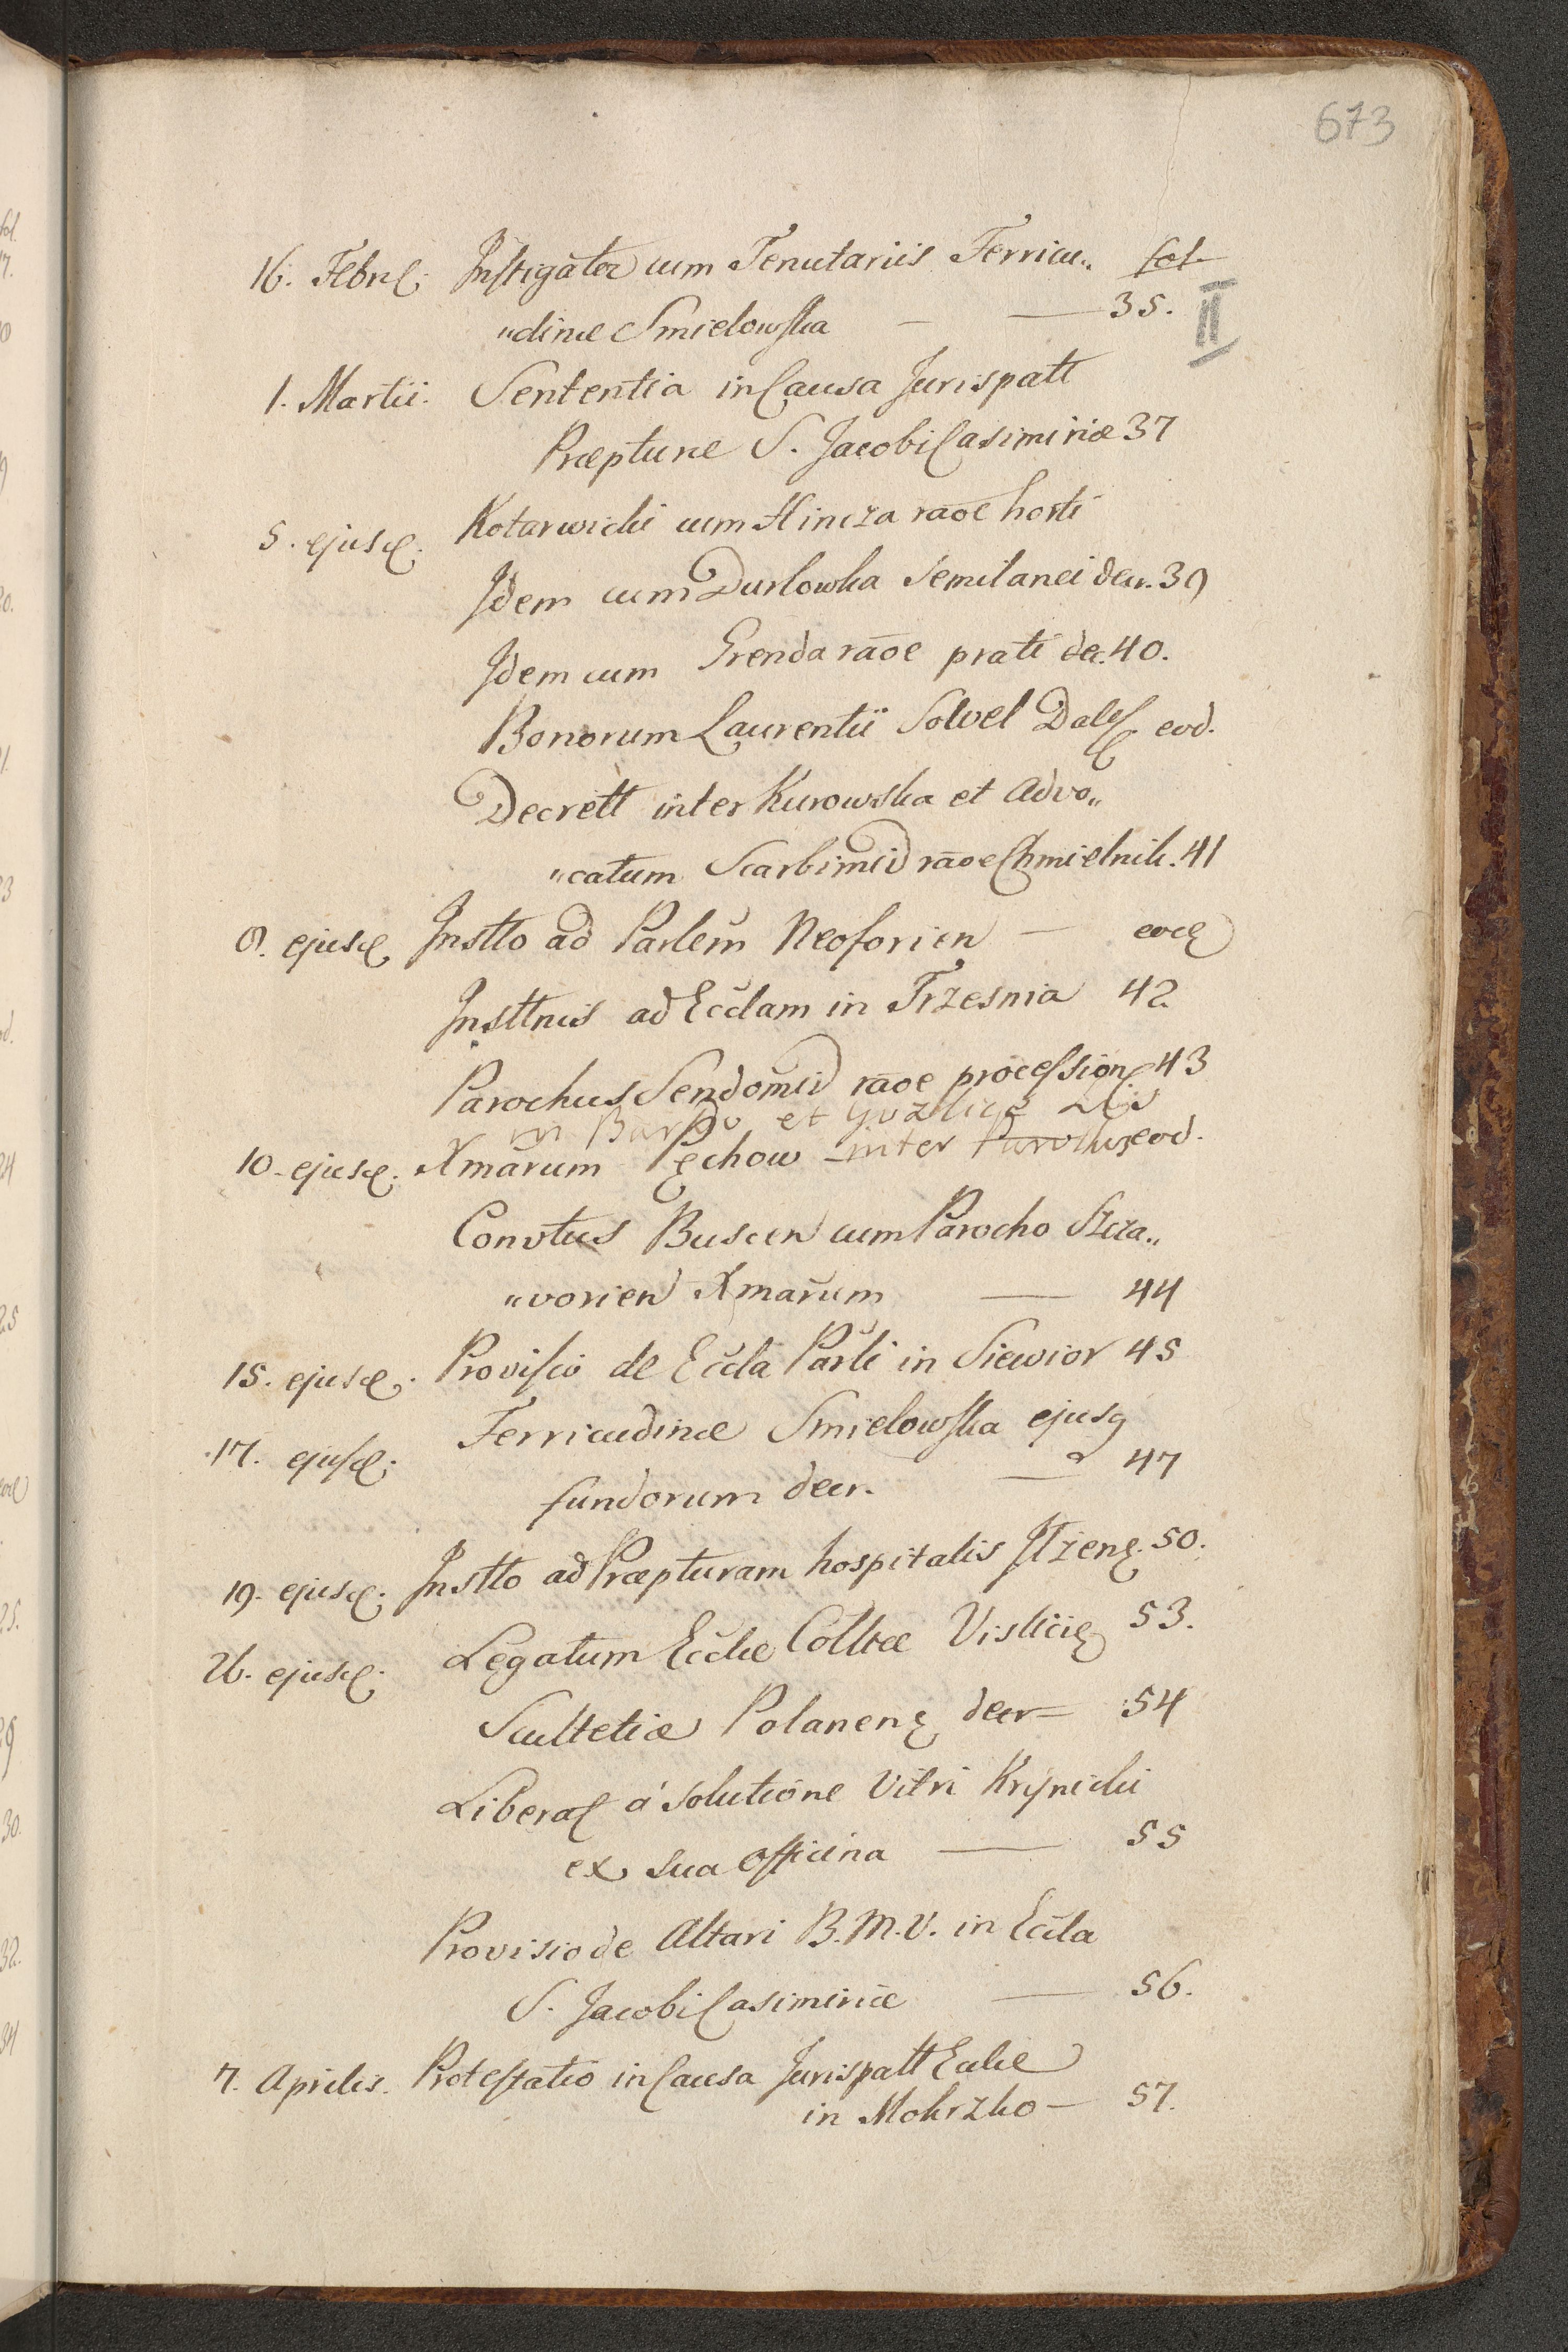 673
16. Febr. Instigator cum Tenutariis Ferricu„ fol.
„dinæ Smielowska — — 35. II
1. Martii. Sententia in Causa Jurispatt
Præpturæ S. Jacobi Casimiriæ 37
5. ejusd. Kotarwicki cum Hincza raõe horti
Idem cum Durlowka Semilanei decr. 39
Idem cum Grenda raõe prati dec. 40.
Bonorum Laurentii Solvel Dales eod.
Decrett inter Kurowska et Advo„
„catum Scarbimid raõe Chmielnik. 41
9. ejusd. Instto ad Parlem Neoforien — eod
Insttnis ad Ecclam in Trzesnia 42
Parochus Sendomid raõe procession 43
in et Gozlice
10. ejusd. Xmarum Pęchow inter eod.
Convtus Buscen cum Parocho Szcza„
„vorien Xmarum — 44
15. ejusd. Provisio de Eccla Parli in Siewior 45
17. ejusd. Ferricudinæ Smielowska ejusq
fundorum decr. — 47
19. ejusd. Instto ad Præpturam hospitalis Ilzen. 50.
26. ejusd. Legatum Ecclæ Colltæ Vislicie 53.
Scultetiæ Polanen decr — 54
Libera a solutione Vitri Krynicki
ex sua officina — 55
Provisio de Altari B. M. V. in Eccla
S. Jacobi Casimiriæ — 56.
7. Aprilis. Protestatio in Causa Jurispatt Ecclæ
in Mokrzko — 57.